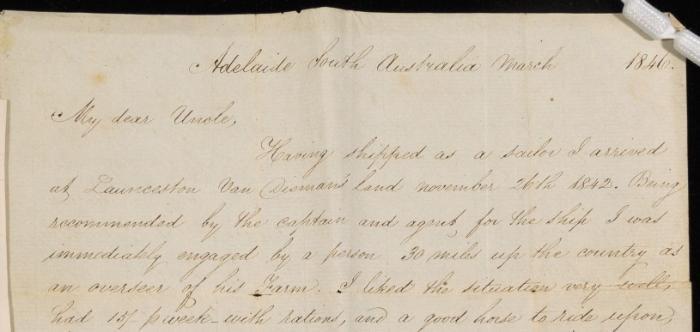 Adelaide South Australia March 1846.
My dear Uncle,
Having shipped as a sailor I arrived
at Launceston Van Dieman's land november 26th 1842. Being
recommended by the captain and agent for the ship I was
immediately engaged by a person 30 miles up the country as
an overseer of his Farm. I liked the situation very well,
had 15/- p week with rations, and a good horse to ride upon,